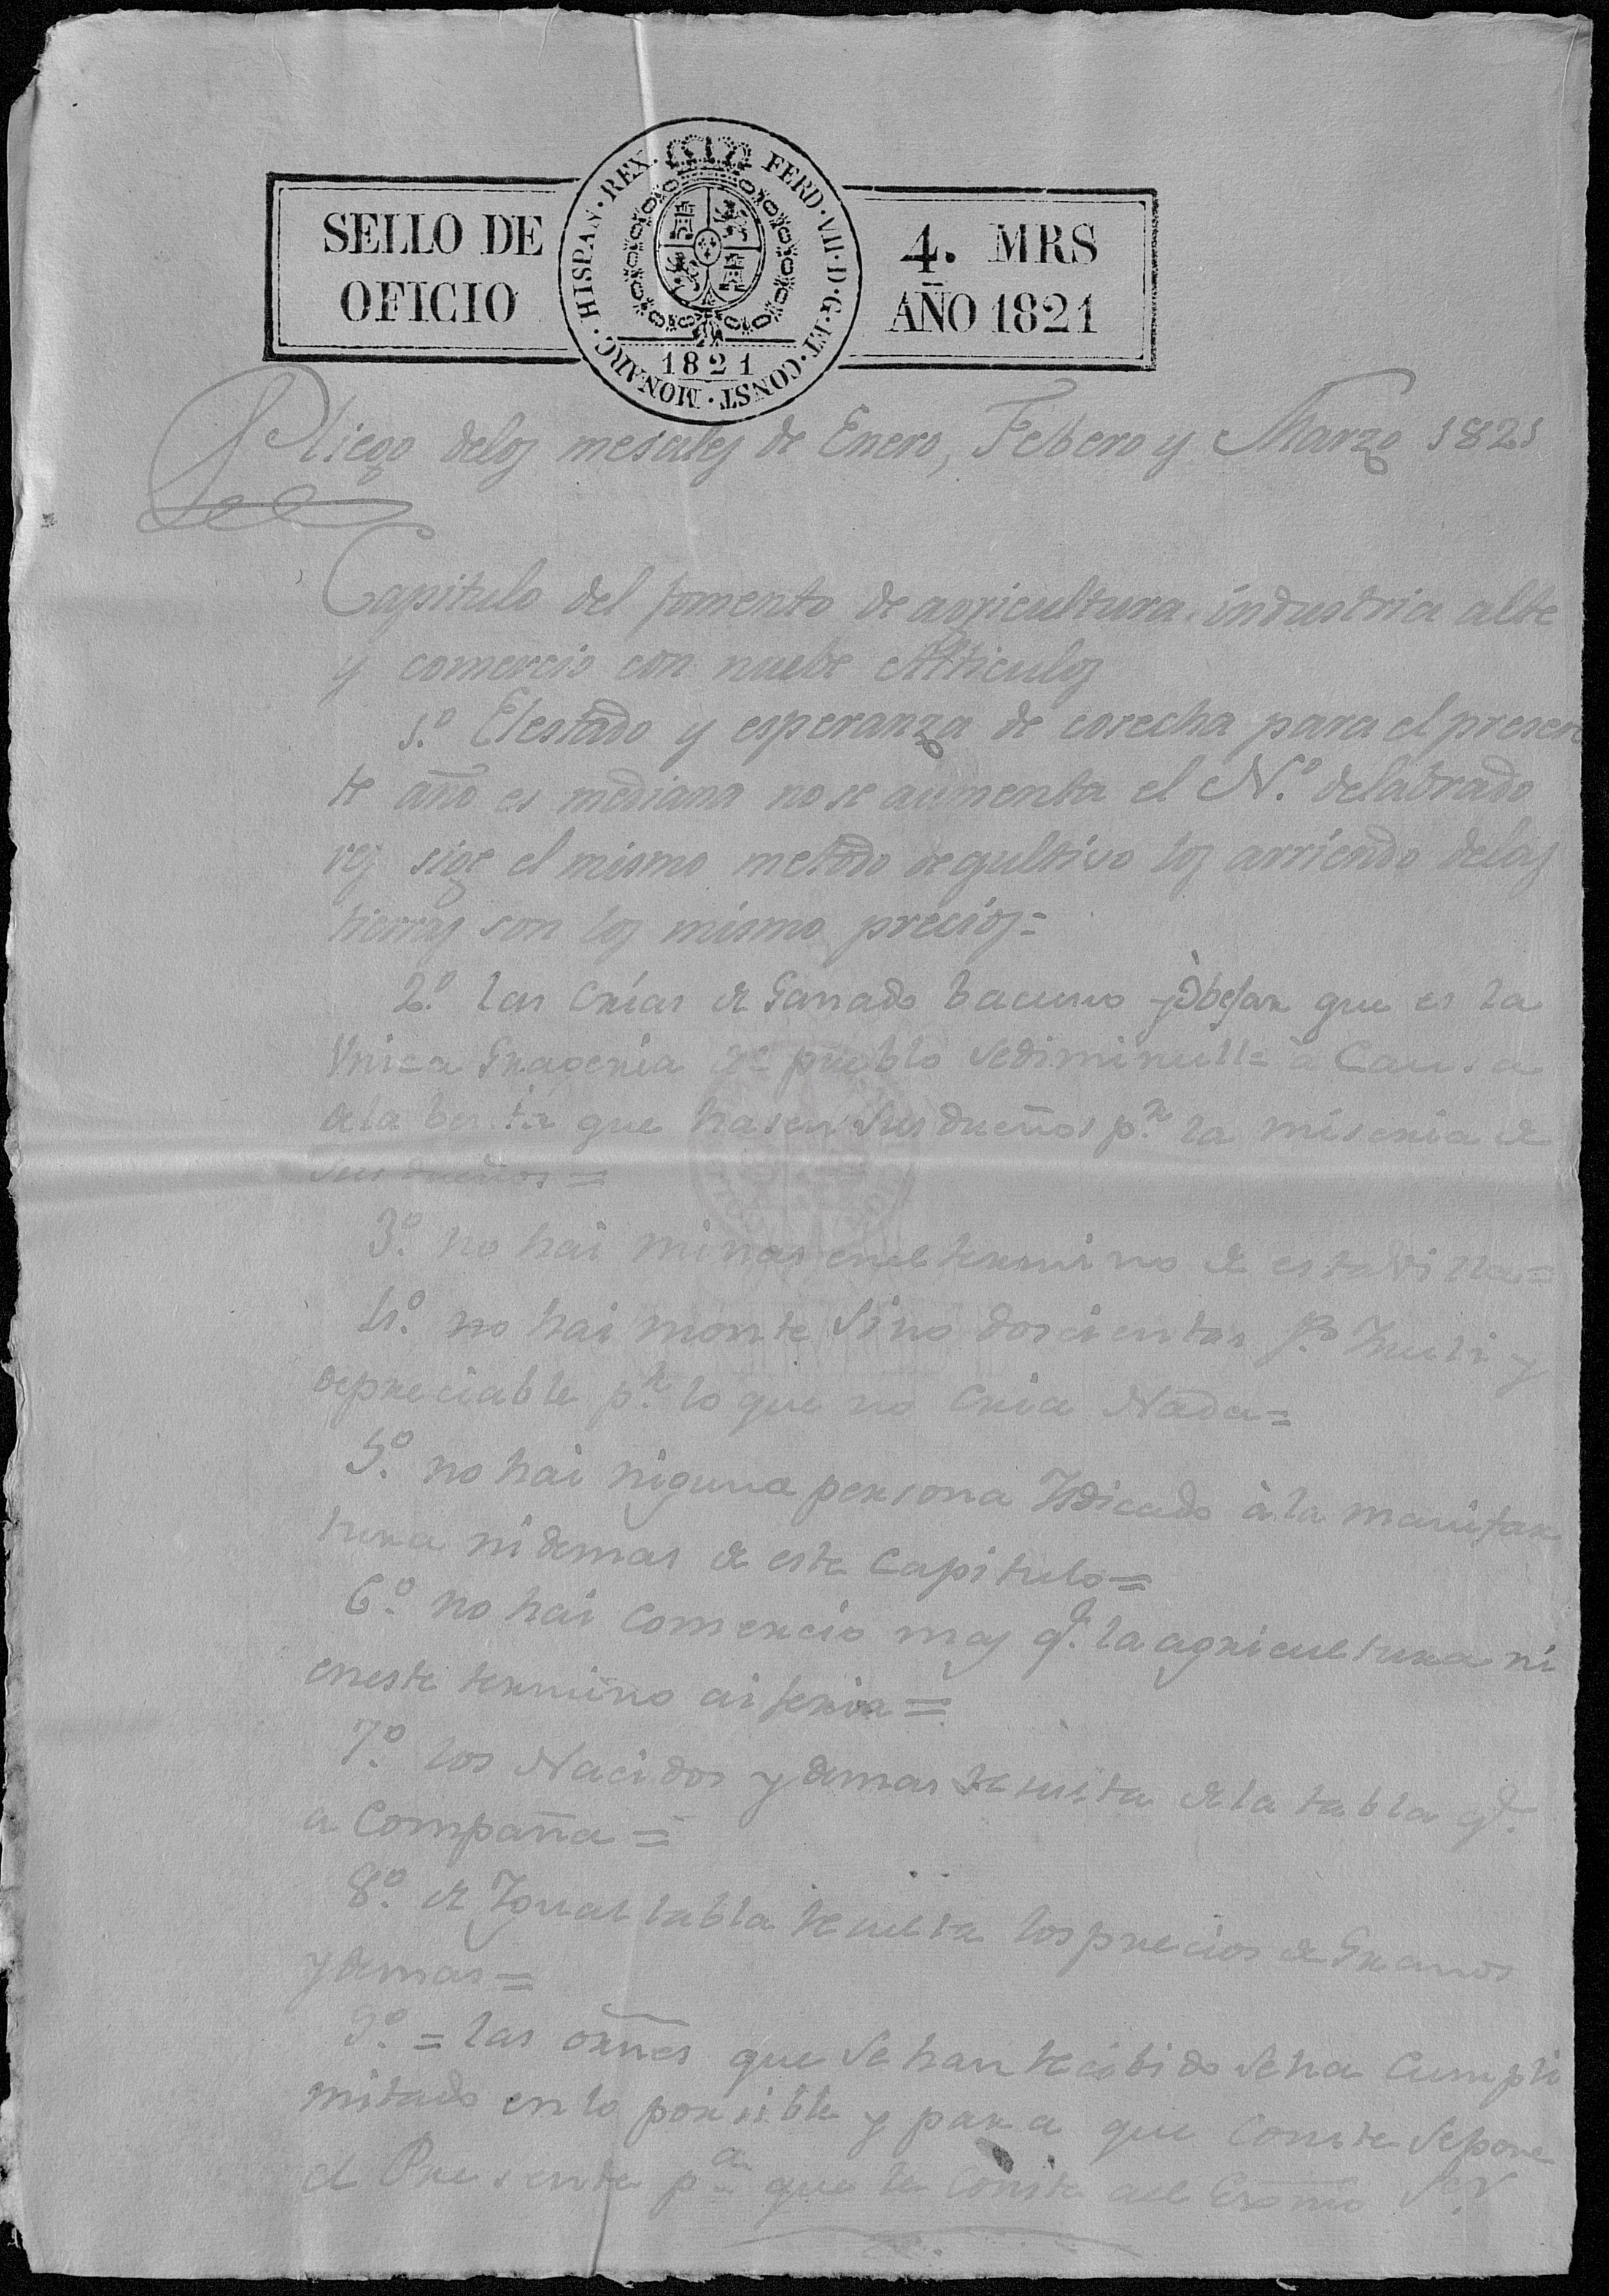 SELLO DE
OFICIO
HISPAN·REX· FERD·VII·D·G·ET·CONST·MONARC·
1821
4. MRS
AÑO 1821
Pliego deloz mesalez de Enero, Febero y Marzo 1821
Capitulo del fomento de agricultura, industria alte
y comercio con nuebe Atticuloz
1.º El estado y esperanza de cosecha para el presen
te año es mediano no se aumenta el N.º delabrado
rez sige el mismo metodo degultivo loz arriendo delaz
tierraz son loz mismo precioz=
2.º las Crias de Ganado bacuno y Obejar que es la
Vnica Grageria de pueblo Sediminull= à Causa
dela que hasen Sus dueños p.r la miseria de
Sus dueños=
3.º no hai minas enel termino de esta Villa=
4.º no hai monte Sino doscientas y
depreciable p.r lo que no Cria Nada=
5.º no hai niguna persona Yndicado à la manifac
tura nidemas de este Capitulo=
6.º no hai Comercio maz q.e la agricultura ni
eneste termino ai feria=
7.º los Nacidos ydemas Resulta dela tabla q.e
a Compaña=
8.º de Ygual tabla Resulta losprecios de Granos
ydemas=
9.º = las orñes que Se han Recibido Seha Cumpli
mitado enlo porsible y para que Conste Sepone
el Presente p.a que le Conste all Exmo S.r